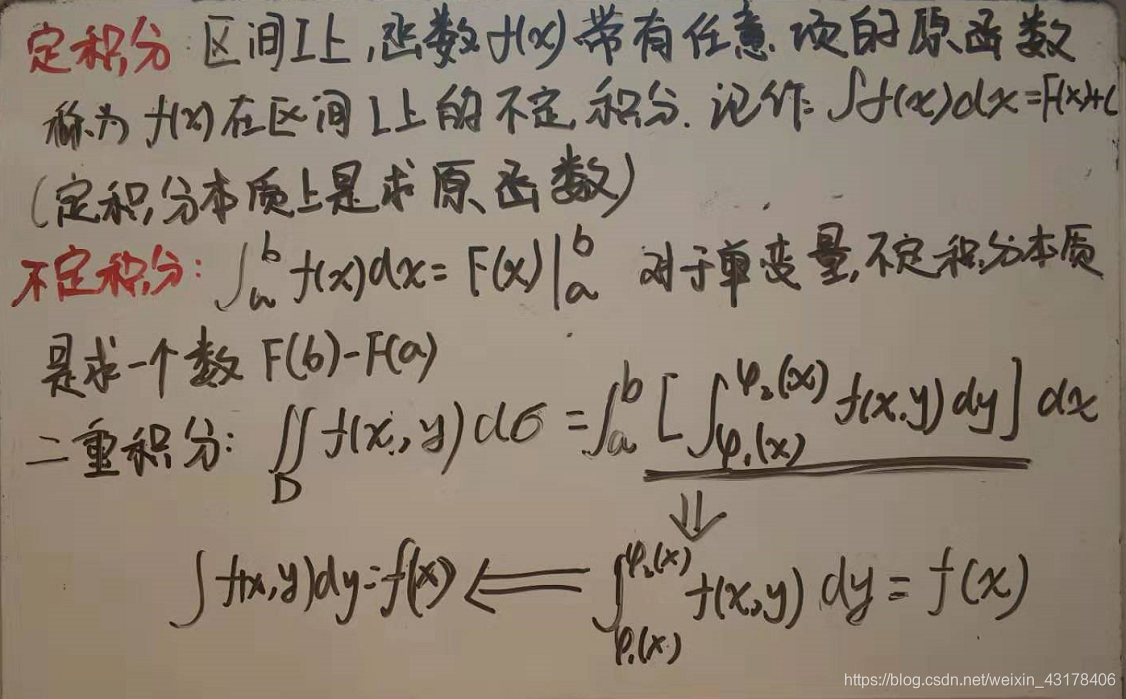 定积分:区间I上,函数f(x)带有任意项的原函数
称为f(x)在区间I上的不定积分.记作:∫f(x)dx=F(x)+C
(定积分本质上是求原函数)
不定积分:∫ₐᵇ f(x)dx=F(x)|ₐᵇ 对于单变量,不定积分本质
是求一个数F(b)-F(a)
二重积分:∬_D f(x,y)dσ=∫ₐᵇ[∫_{φ₁(x)}^{φ₂(x)} f(x,y)dy]dx
⇓
∫f(x,y)dy=f(x) ⇐ ∫_{φ₁(x)}^{φ₂(x)} f(x,y)dy=f(x)
https://blog.csdn.net/weixin_43178406